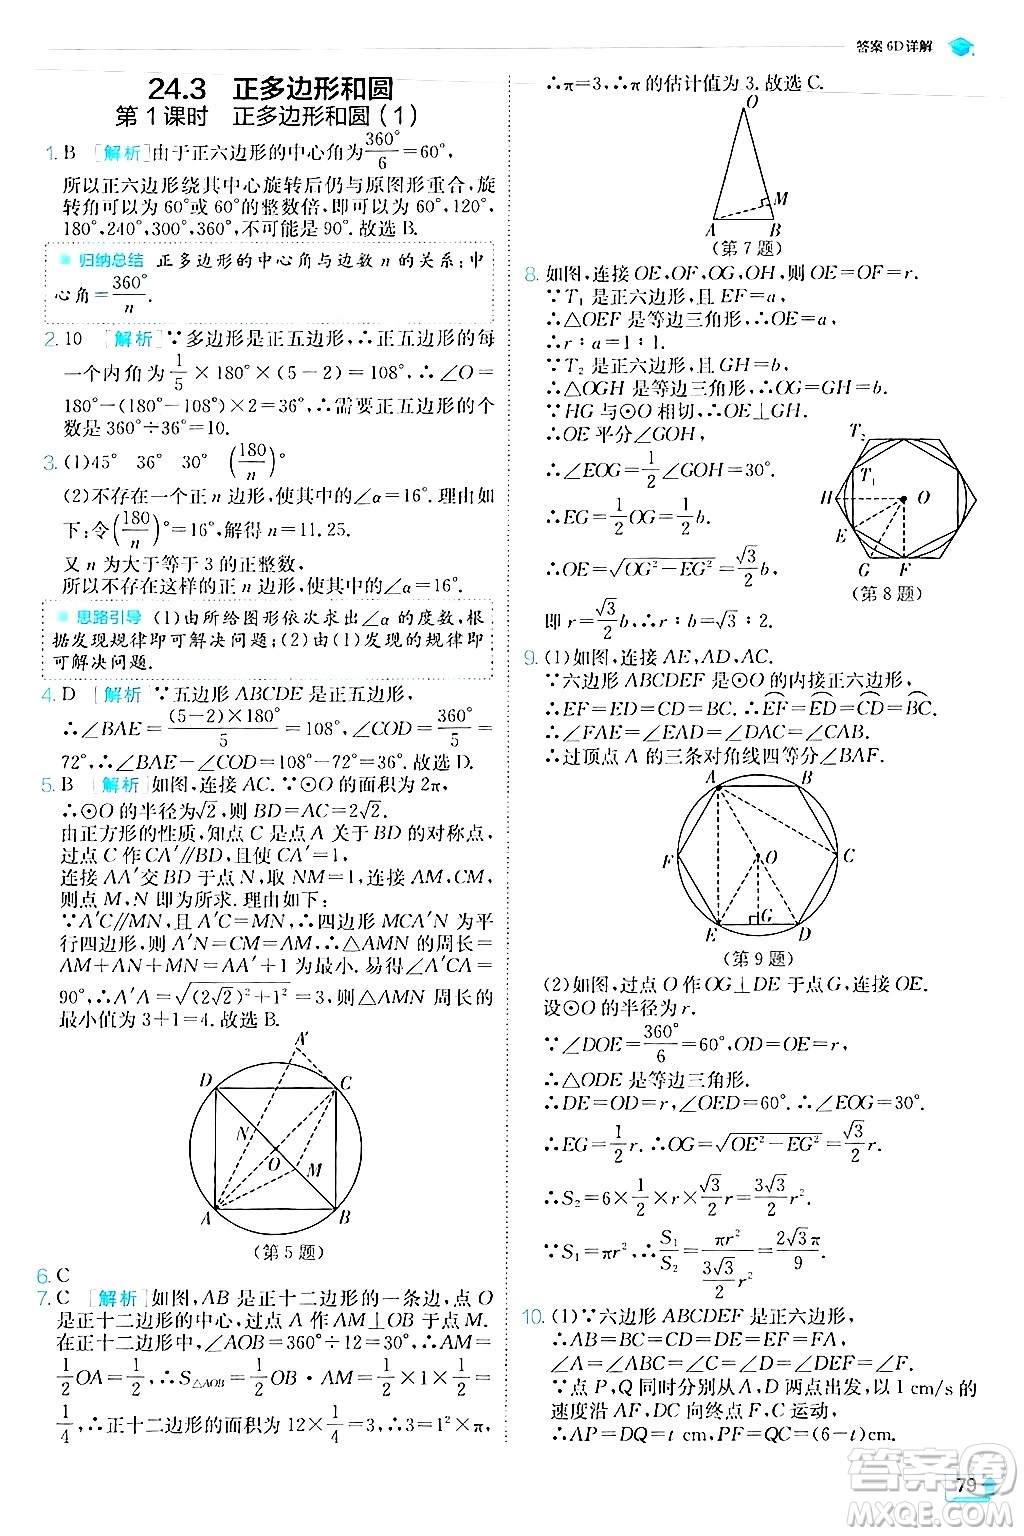 答案 6D详解
24.3 正多边形和圆
第1课时 正多边形和圆(1)
1. B [解析]由于正六边形的中心角为360°/6=60°,
所以正六边形绕其中心旋转后仍与原图形重合,旋
转角可以为60°或60°的整数倍,即可以为60°,120°,
180°,240°,300°,360°,不可能是90°.故选B.
归纳总结 正多边形的中心角与边数n的关系:中
心角=360°/n.
2. 10 [解析]∵多边形是正五边形,∴正五边形的每
一个内角为1/5×180°×(5-2)=108°,∴∠O=
180°-(180°-108°)×2=36°,∴需要正五边形的个
数是360°÷36°=10.
3. (1)45° 36° 30° (180/n)°
(2)不存在一个正n边形,使其中的∠α=16°.理由如
下:令(180/n)°=16°,解得n=11.25.
又n为大于等于3的正整数,
所以不存在这样的正n边形,使其中的∠α=16°.
思路引导 (1)由所给图形依次求出∠α的度数,根
据发现规律即可解决问题;(2)由(1)发现的规律即
可解决问题.
4. D [解析]∵五边形ABCDE是正五边形,
∴∠BAE=(5-2)×180°/5=108°,∠COD=360°/5=
72°,∴∠BAE-∠COD=108°-72°=36°.故选D.
5. B [解析]如图,连接AC.∵⊙O的面积为2π,
∴⊙O的半径为√2,则BD=AC=2√2.
由正方形的性质,知点C是点A关于BD的对称点,
过点C作CA′∥BD,且使CA′=1,
连接AA′交BD于点N,取NM=1,连接AM,CM,
则点M,N为所求.理由如下:
∵A′C∥MN,且A′C=MN,∴四边形MCA′N为平
行四边形,则A′N=CM=AM,∴△AMN的周长=
AM+AN+MN=AA′+1为最小.易得∠A′CA=
90°,∴A′A=√((2√2)²+1²)=3,则△AMN周长的
最小值为3+1=4.故选B.
A′
D
C
N
O
M
A
B
(第5题)
6. C
7. C [解析]如图,AB是正十二边形的一条边,点O
是正十二边形的中心,过点A作AM⊥OB于点M.
在正十二边形中,∠AOB=360°÷12=30°,∴AM=
1/2OA=1/2,∴S△AOB=1/2OB·AM=1/2×1×1/2=
1/4,∴正十二边形的面积为12×1/4=3,∴3=1²×π,
∴π=3,∴π的估计值为3.故选C.
O
M
A
B
(第7题)
8. 如图,连接OE,OF,OG,OH,则OE=OF=r.
∵T₁是正六边形,且EF=a,
∴△OEF是等边三角形,∴OE=a,
∴r∶a=1∶1.
∵T₂是正六边形,且GH=b,
∴△OGH是等边三角形,∴OG=GH=b.
∵HG与⊙O相切,∴OE⊥GH.
∴OE平分∠GOH,
∴∠EOG=1/2∠GOH=30°.
∴EG=1/2OG=1/2b.
∴OE=√(OG²-EG²)=√3/2b,
即r=√3/2b,∴r∶b=√3∶2.
T₂
T₁
H
O
E
G
F
(第8题)
9. (1)如图,连接AE,AD,AC.
∵六边形ABCDEF是⊙O的内接正六边形,
∴EF=ED=CD=BC.∴⌒EF=⌒ED=⌒CD=⌒BC.
∴∠FAE=∠EAD=∠DAC=∠CAB.
∴过顶点A的三条对角线四等分∠BAF.
A
B
F
O
C
E
G
D
(第9题)
(2)如图,过点O作OG⊥DE于点G,连接OE.
设⊙O的半径为r.
∵∠DOE=360°/6=60°,OD=OE=r,
∴△ODE是等边三角形.
∴DE=OD=r,∠OED=60°.∴∠EOG=30°.
∴EG=1/2r.∴OG=√(OE²-EG²)=√3/2r.
∴S₂=6×1/2×r×√3/2r=3√3/2r².
∵S₁=πr²,∴S₁/S₂=πr²/(3√3/2r²)=2√3π/9.
10. (1)∵六边形ABCDEF是正六边形,
∴AB=BC=CD=DE=EF=FA,
∠A=∠ABC=∠C=∠D=∠DEF=∠F.
∵点P,Q同时分别从A,D两点出发,以1 cm/s的
速度沿AF,DC向终点F,C运动,
∴AP=DQ=t cm,PF=QC=(6-t)cm.
79
答案圈
MXQE.COM